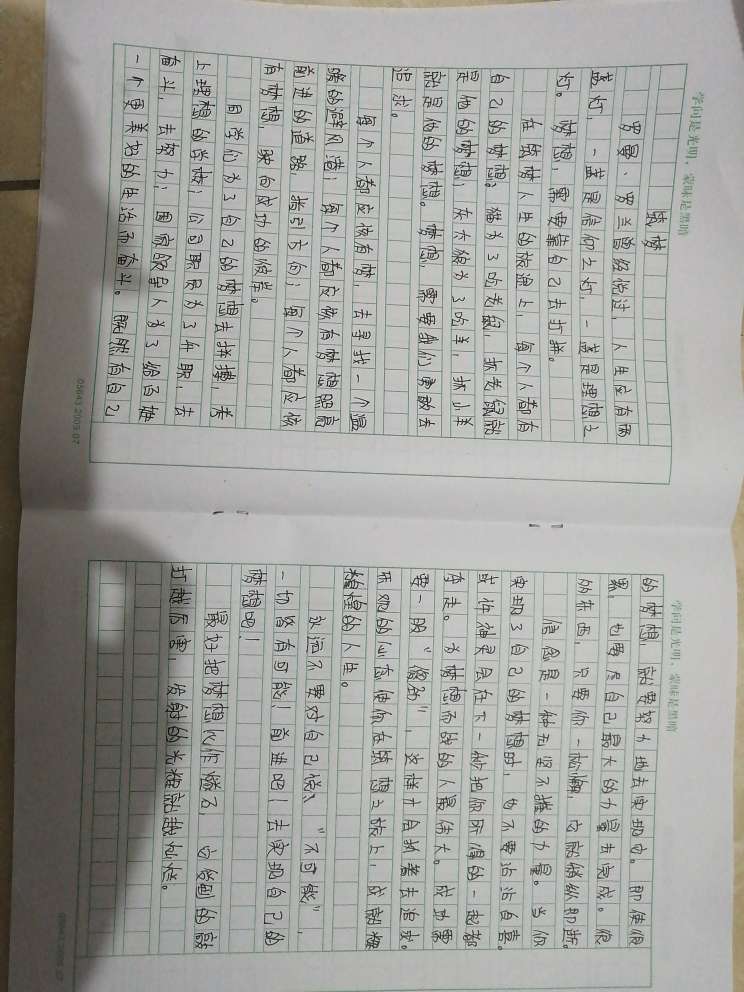 学问是光明，蒙昧是黑暗
筑梦
罗曼·罗兰曾经说过，人生应有两
盏灯，一盏是信仰之灯，一盏是理想之
灯。梦想，需要靠自己去打拼。
在筑梦人生的旅途上，每个人都有
自己的梦想；猫为了吃老鼠，抓老鼠就
是他的梦想；灰太狼为了吃羊，抓小羊
就是他的梦想。梦想，需要我们勇敢去
追求。
每个人都应做有梦，去寻找一个温
馨的避风港；每个人都应做有梦想照亮
前进的道路，指引方向；每个人都应做
有梦想，驶向成功的彼岸。
同学们为了自己的梦想去拼搏，考
上理想的学校；公司职员为了升职，去
奋斗，去努力；国家领导人为了给百姓
一个更美好的生活而奋斗。既然有自己
05643.2009.07
学问是光明，蒙昧是黑暗
的梦想，就要努力地去实现它。即使很
累，也要尽自己最大的力量去完成。很
的东西，只要你一松懈，它就
信念是一种无坚不摧的力量。当你
实现了自己的梦想时，也不要沾沾自喜。
或许神灵会在下一秒把你所得的一起都
夺走。为梦想而战的人最伟大。成功需
要一股“傻劲”，这样才会执着去追求。
积极的心态使你在筑梦之旅上，成就辉
煌的人生。
永远不要对自己说：“不可能”，
一切皆有可能！前进吧！去实现自己的
梦想吧！
最好把梦想化作燧石，它受到的敲
打越厉害，放射的光辉就越灿烂。